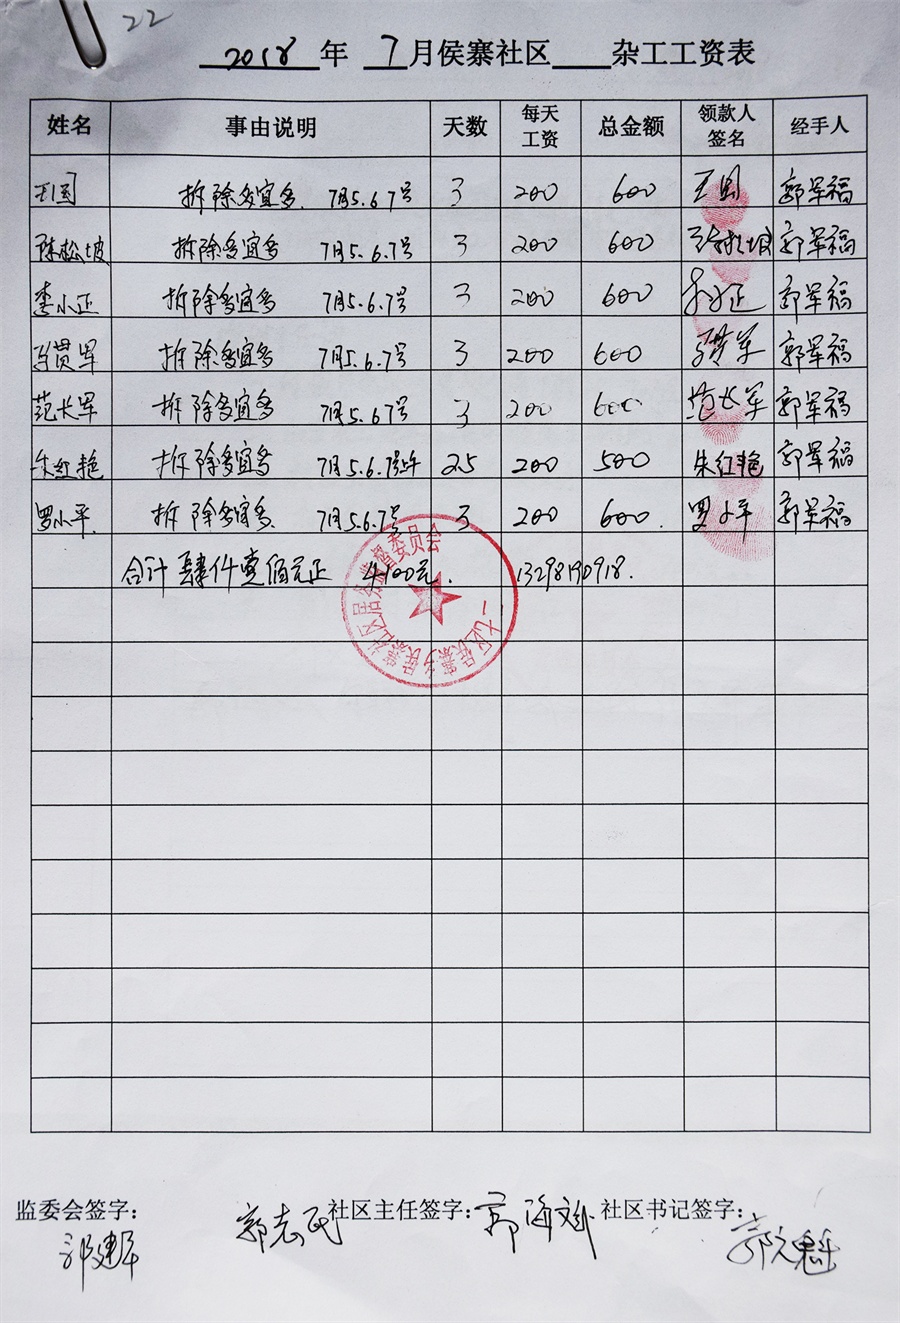 22
2018年 7月侯寨社区 杂工工资表
姓名 事由说明 天数 每天工资 总金额 领款人签名 经手人
王国 拆除多宜多. 7月5.6.7号 3 200 600 王国 郭军福
陈松坡 拆除多宜多 7月5.6.7号 3 200 600 陈松坡 郭军福
李小正 拆除多宜多 7月5.6.7号 3 200 600 李小正 郭军福
马贯军 拆除多宜多 7月5.6.7号 3 200 600 郭军福
范长军 拆除多宜多 7月5.6.7号 3 200 600 范长军 郭军福
朱红艳 拆除多宜多 7月5.6.7号上午 2.5 200 500 朱红艳 郭军福
罗小平 拆除多宜多 7月5.6.7号 3 200 600. 罗小平 郭军福
合计 肆仟壹佰元正 4100元. 13298190918.
监委会签字: 社区主任签字: 社区书记签字:
郭建军 郭志民 郭海斌 郭魁